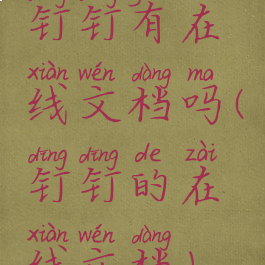 钉钉有在
xiàn wén dàng ma
线文档吗(
dīng dīng de zài
钉钉的在
xiàn wén dàng
线文档)